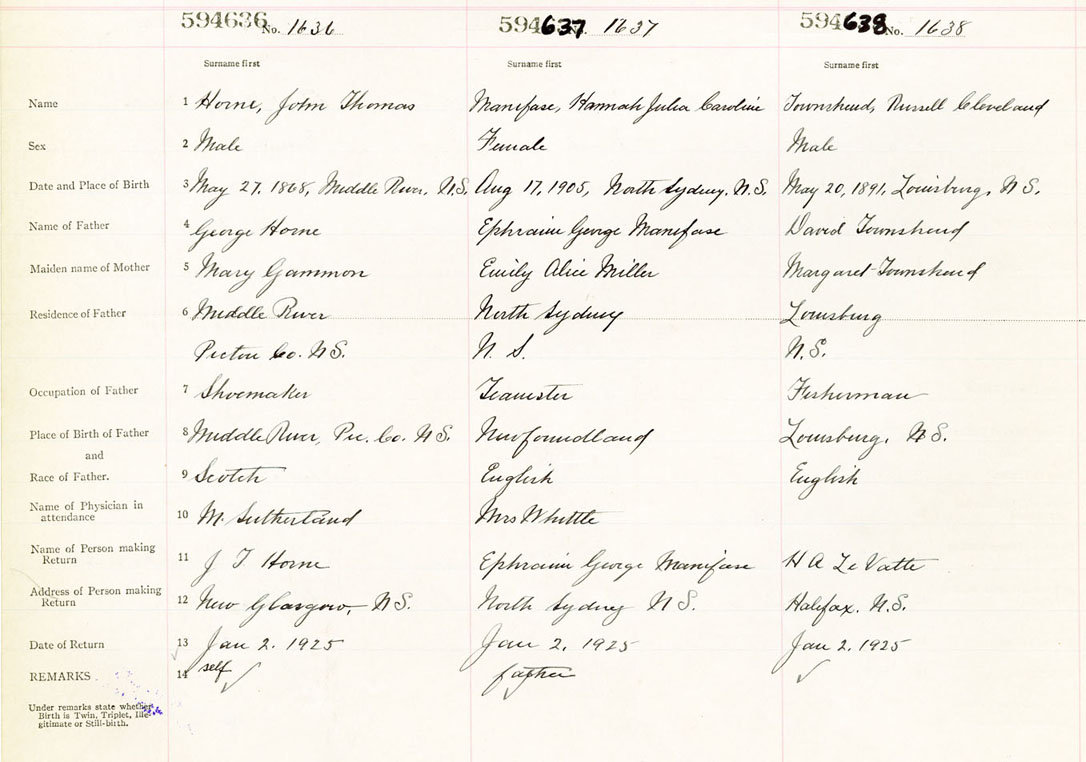 594636 No. 1636 594637 No. 1637 594638 No. 1638
Surname first Surname first Surname first
Name 1 Horne, John Thomas Manifase, Hannah Julia Caroline Townshend, Russell Cleveland
Sex 2 Male Female Male
Date and Place of Birth 3 May 27, 1868, Middle River, N.S. Aug 17, 1905, North Sydney, N.S. May 20, 1891, Louisburg, N.S.
Name of Father 4 George Horne Ephraim George Manifase David Townshend
Maiden name of Mother 5 Mary Gammon Emily Alice Miller Margaret Townshend
Residence of Father 6 Middle River North Sydney Louisburg
Pictou Co. N.S. N. S. N.S.
Occupation of Father 7 Shoemaker Teamster Fisherman
Place of Birth of Father 8 Middle River, Pic. Co. N.S. Newfoundland Louisburg, N.S.
and
Race of Father. 9 Scotch English English
Name of Physician in
attendance 10 M. Sutherland Mrs Whittle
Name of Person making
Return 11 J T Horne Ephraim George Manifase H A Le Vatte
Address of Person making
Return 12 New Glasgow, N.S. North Sydney N.S. Halifax, N.S.
Date of Return 13 Jan 2. 1925 Jan 2, 1925 Jan 2, 1925
REMARKS 14 self father
Under remarks state whether
Birth is Twin, Triplet, Ille-
gitimate or Still-birth.